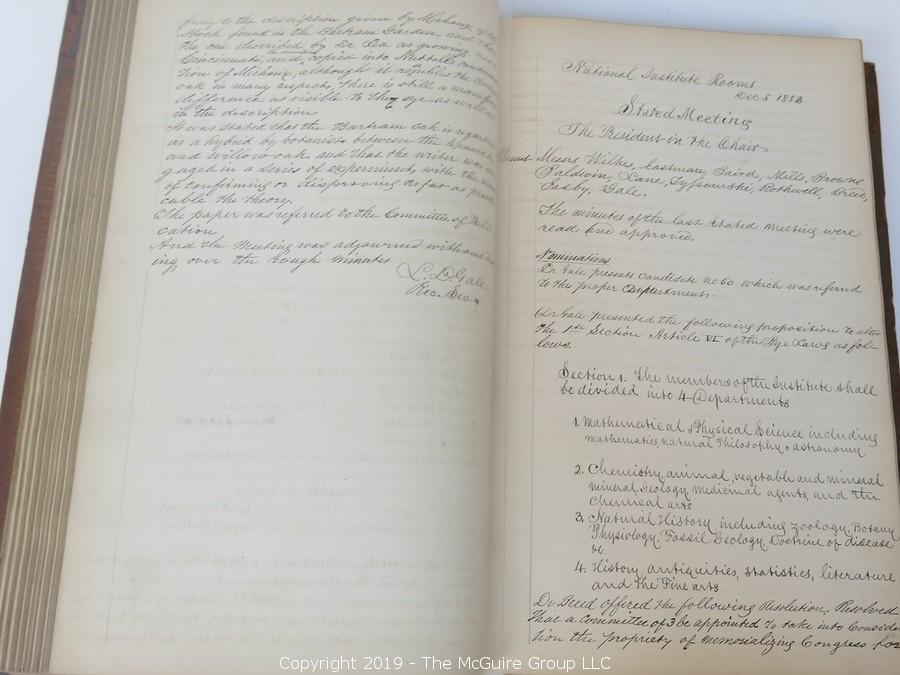 fully to the description given by Michaux of
stock found in the Bartram Garden, and
the one described by Dr Lea as growing
Cincinnati, and copied into Nuttalls
tion of Michaux, although it resembles the Bartram
oak in many respects, there is still a manifest
difference as visible to the eye as well as
in the description
It was stated that the Bartram oak is regarded
as a hybrid by botanists between the
and willow oak and that the writer was en
gaged in a series of experiments with the
of confirming or disproving as far as practi
cable the theory.
The paper was referred to the Committee of Publi
cation
And the Meeting was adjourned without
ing over the rough minutes
L. D. Gale
Rec. Sec.
National Institute Rooms
Dec 5 1853
Stated Meeting
The President in the Chair,
Present Messrs Wilkes, Eastman, Baird, Mills, Browne
Baldwin, Lane, Tyssowski, Rothwell,
Easby, Gale.
The minutes of the last stated meeting were
read and approved.
Nominations
Dr Gale presents candidate no 60 which was referred
to the proper Department.
Dr Gale presented the following proposition to alter
the 1st Section Article VI of the Bye Laws as fol-
lows.
Section 1. The members of the Institute shall
be divided into 4 Departments
1. Mathematical & Physical Science including
mathematics, natural Philosophy & astronomy
2. Chemistry, animal, vegetable and mineral
mineral Geology, medicinal agents, and the
Chemical arts
3. Natural History including zoology, Botany
Physiology, Fossil Geology, Doctrine of disease
&c
4. History, antiquities, statistics, literature
and the Fine arts
Dr offered the following Resolution, Resolved
That a committee of 3 be appointed to take into Consider
tion the propriety of memorializing Congress for
Copyright 2019 - The McGuire Group LLC